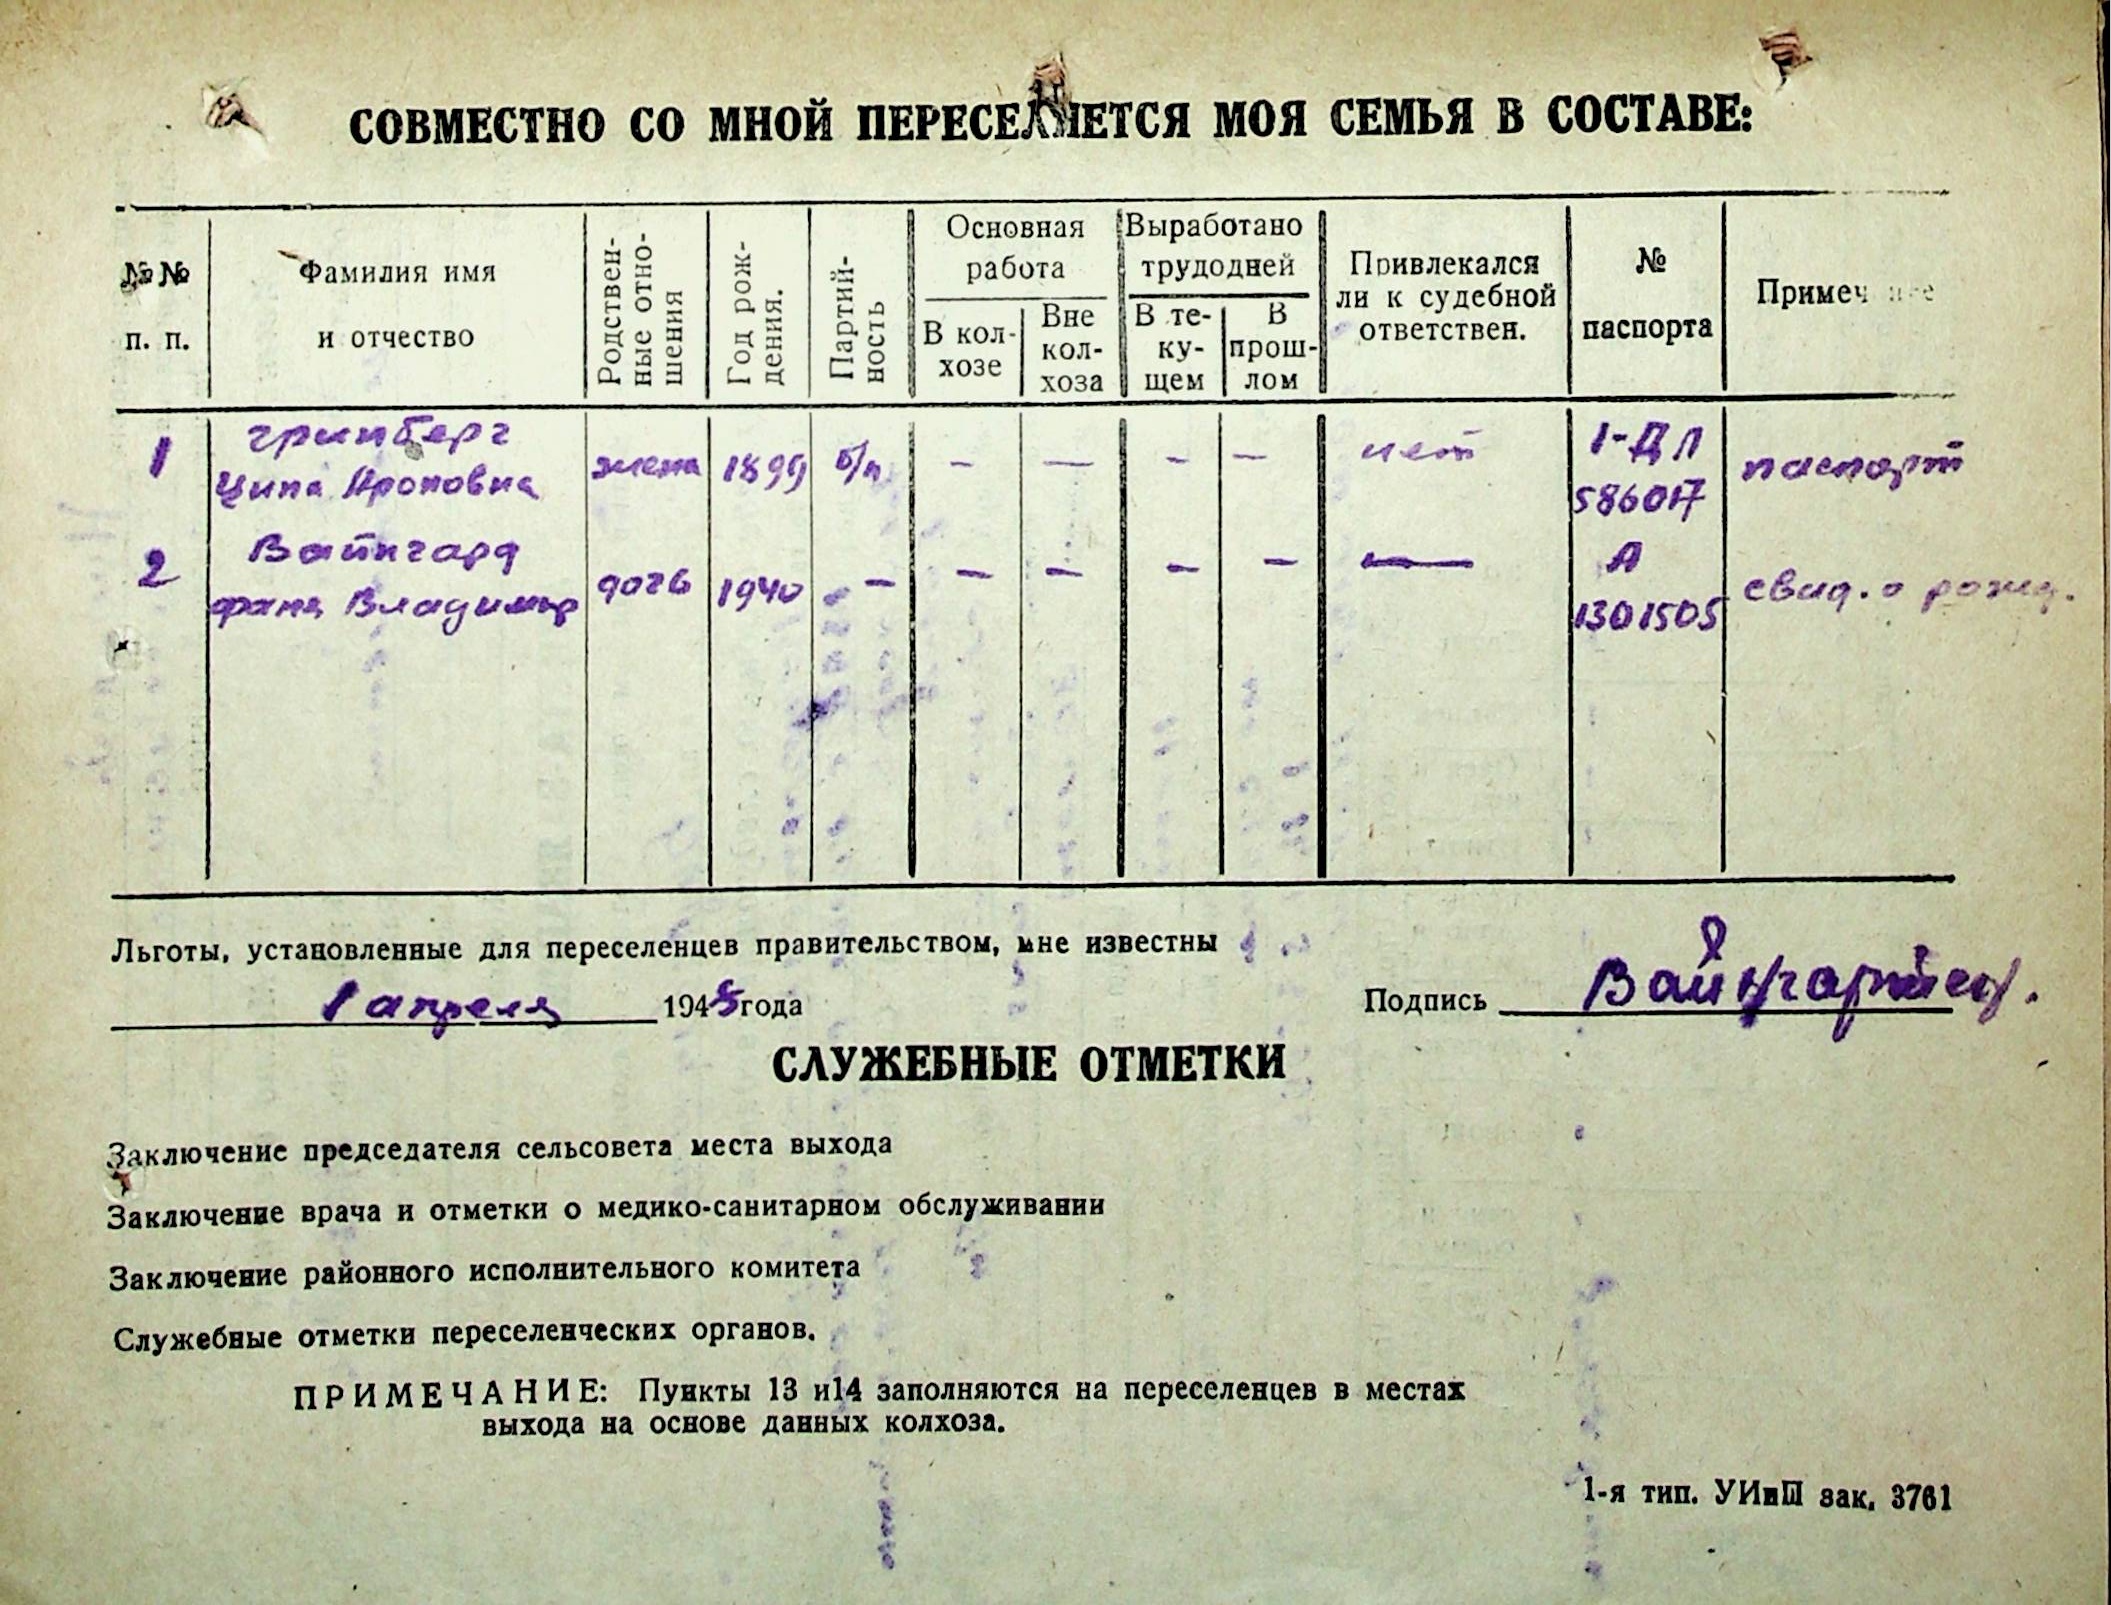 СОВМЕСТНО СО МНОЙ ПЕРЕСЕЛЯЕТСЯ МОЯ СЕМЬЯ В СОСТАВЕ:
№№ п. п.
Фамилия имя и отчество
Родствен-ные отно-шения
Год рож-дения.
Партий-ность
Основная работа
В кол-хозе
Вне кол-хоза
Выработано трудодней
В те-ку-щем
В прош-лом
Привлекался ли к судебной ответствен.
№ паспорта
Примеч
1 Гринберг
Ципа Ароновна жена 1899 б/п – — – – нет 1-ДЛ 586017 паспорт
2 Вайнгард
Фаня Владимир дочь 1940 – – – – – — А 1301505 свид. о рожд.
Льготы, установленные для переселенцев правительством, мне известны
1 апреля 1948 года
Подпись
СЛУЖЕБНЫЕ ОТМЕТКИ
Заключение председателя сельсовета места выхода
Заключение врача и отметки о медико-санитарном обслуживании
Заключение районного исполнительного комитета
Служебные отметки переселенческих органов.
ПРИМЕЧАНИЕ: Пункты 13 и14 заполняются на переселенцев в местах
выхода на основе данных колхоза.
1-я тип. УИиП зак. 3761